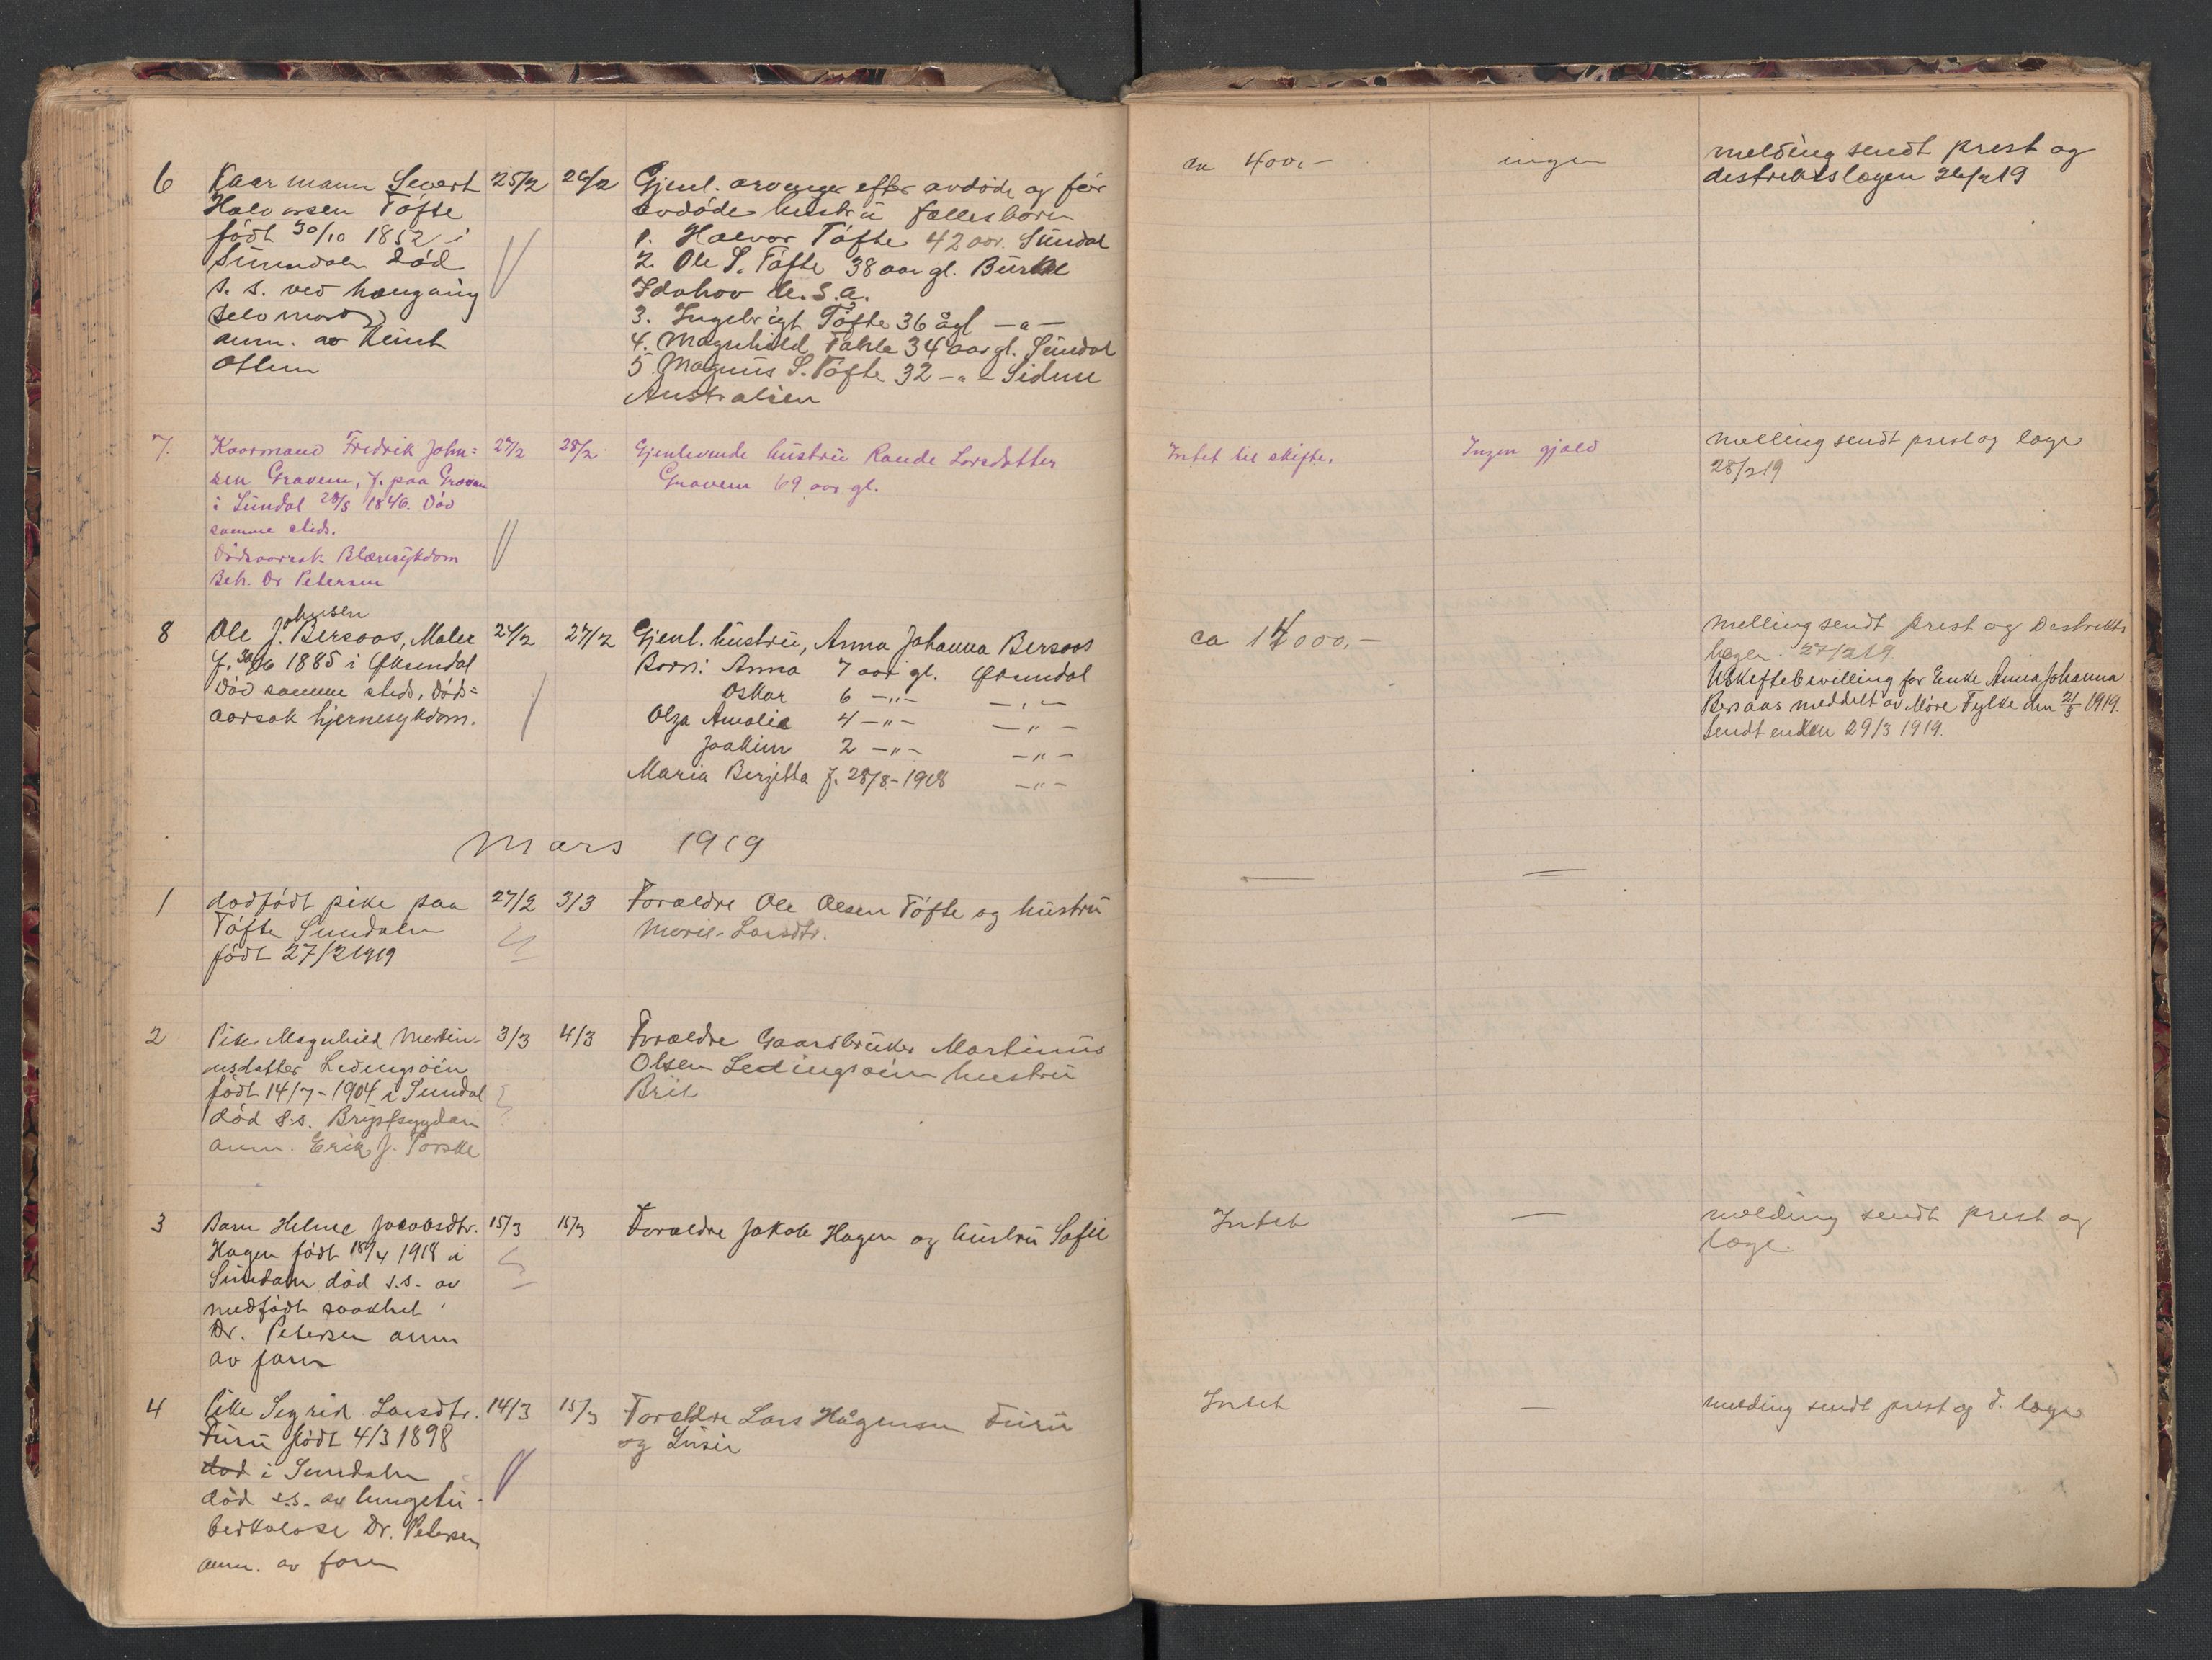 6
Kaarmann Severt
Halvorsen Tøfte
født 30/10 1852 i
Sunndalen død
s. s. ved hængning
selvmord
anm. av Knut
Ottem
25/2
26/2
Gjenl. arvinger efter avdøde og før
avdøde hustru fællesbørn
1. Halvor Tøfte 42 aar. Sundal
2. Ole S. Tøfte 38 aar gl. Burke
Idahov U.S.A.
3. Ingebrigt Tøfte 36 ågl —"—
4. Magnhild Fahle 34 aar gl. Sundal
5 Magnus S. Tøfte 32 —"— Sidne
Australien
ca 400.-
ingen
melding sendt prest og
destriktslægen 26/2 19
7.
Kaarmand Fredrik John=
sen Gravem, f. paa Gravem
i Sundal 28/8 1846. Død
samme steds.
Dødsaarsak Blæresykdom
Beh. Dr Petersen
27/2
28/2
Gjenlevende hustru Rande Larsdatter
Gravem 69 aar gl.
Intet til skifte.
Ingen gjæld
melling sendt prest og læge
28/2 19
8
Ole Johnsen Bersaas, Maler
f. 30/6 1885 i Øksendal
Død samme steds, døds=
aarsak hjernesykdom.
24/2
27/2
Gjenl. hustru, Anna Johanna Bersaas
Barn: Anna 7 aar gl. Øksendal
Oskar 6 —"— —"—
Olga Amalie 4 —"— —"—
Joakim 2 —"— —"—
Maria Berjitta f. 28/8-1918 —"—
ca 14000,-
melling sendt prest og Destrikts
lægen. 27/2 19
Uskiftebevilling for Enke Anna Johanna
Bersaas meddelt av Møre Fylke den 21/3 1919.
Sendt enken 29/3 1919.
Mars 1919
1
dødfødt pike paa
Tøfte Sundalen
født 27/2 1919
27/2
3/3
Forældre Ole Olsen Tøfte og hustru
Marie Larsdtr.
—
—
2
Pike Magnhild Martin-
usdatter Ledingsøin
født 14/7-1904 i Sundal
død s.s. Brystsygdom
anm. Erik J. Torske
3/3
4/3
Forældre Gaardbruker Martinus
Olsen Ledingsøin hustru
Brit
3
Barn Helene Jacobsdtr.
Hagen født 18/4 1918 i
Sundalen død s.s. av
medfødt svakhet
Dr. Petersen anm
av faren
15/3
15/3
Forældre Jakob Hagen og hustru Sofie
Intet
—
melding sendt prest og
læge.
4
Pike Sigrid Larsdtr.
Furu født 4/3 1898
død i Sundalen
død s.s. av lungetu-
berkulose Dr. Petersen
anm. av faren
14/3
15/3
Forældre Lars Hågensen Furu
og Lusie
Intet
—
melding sendt prest og d. læge